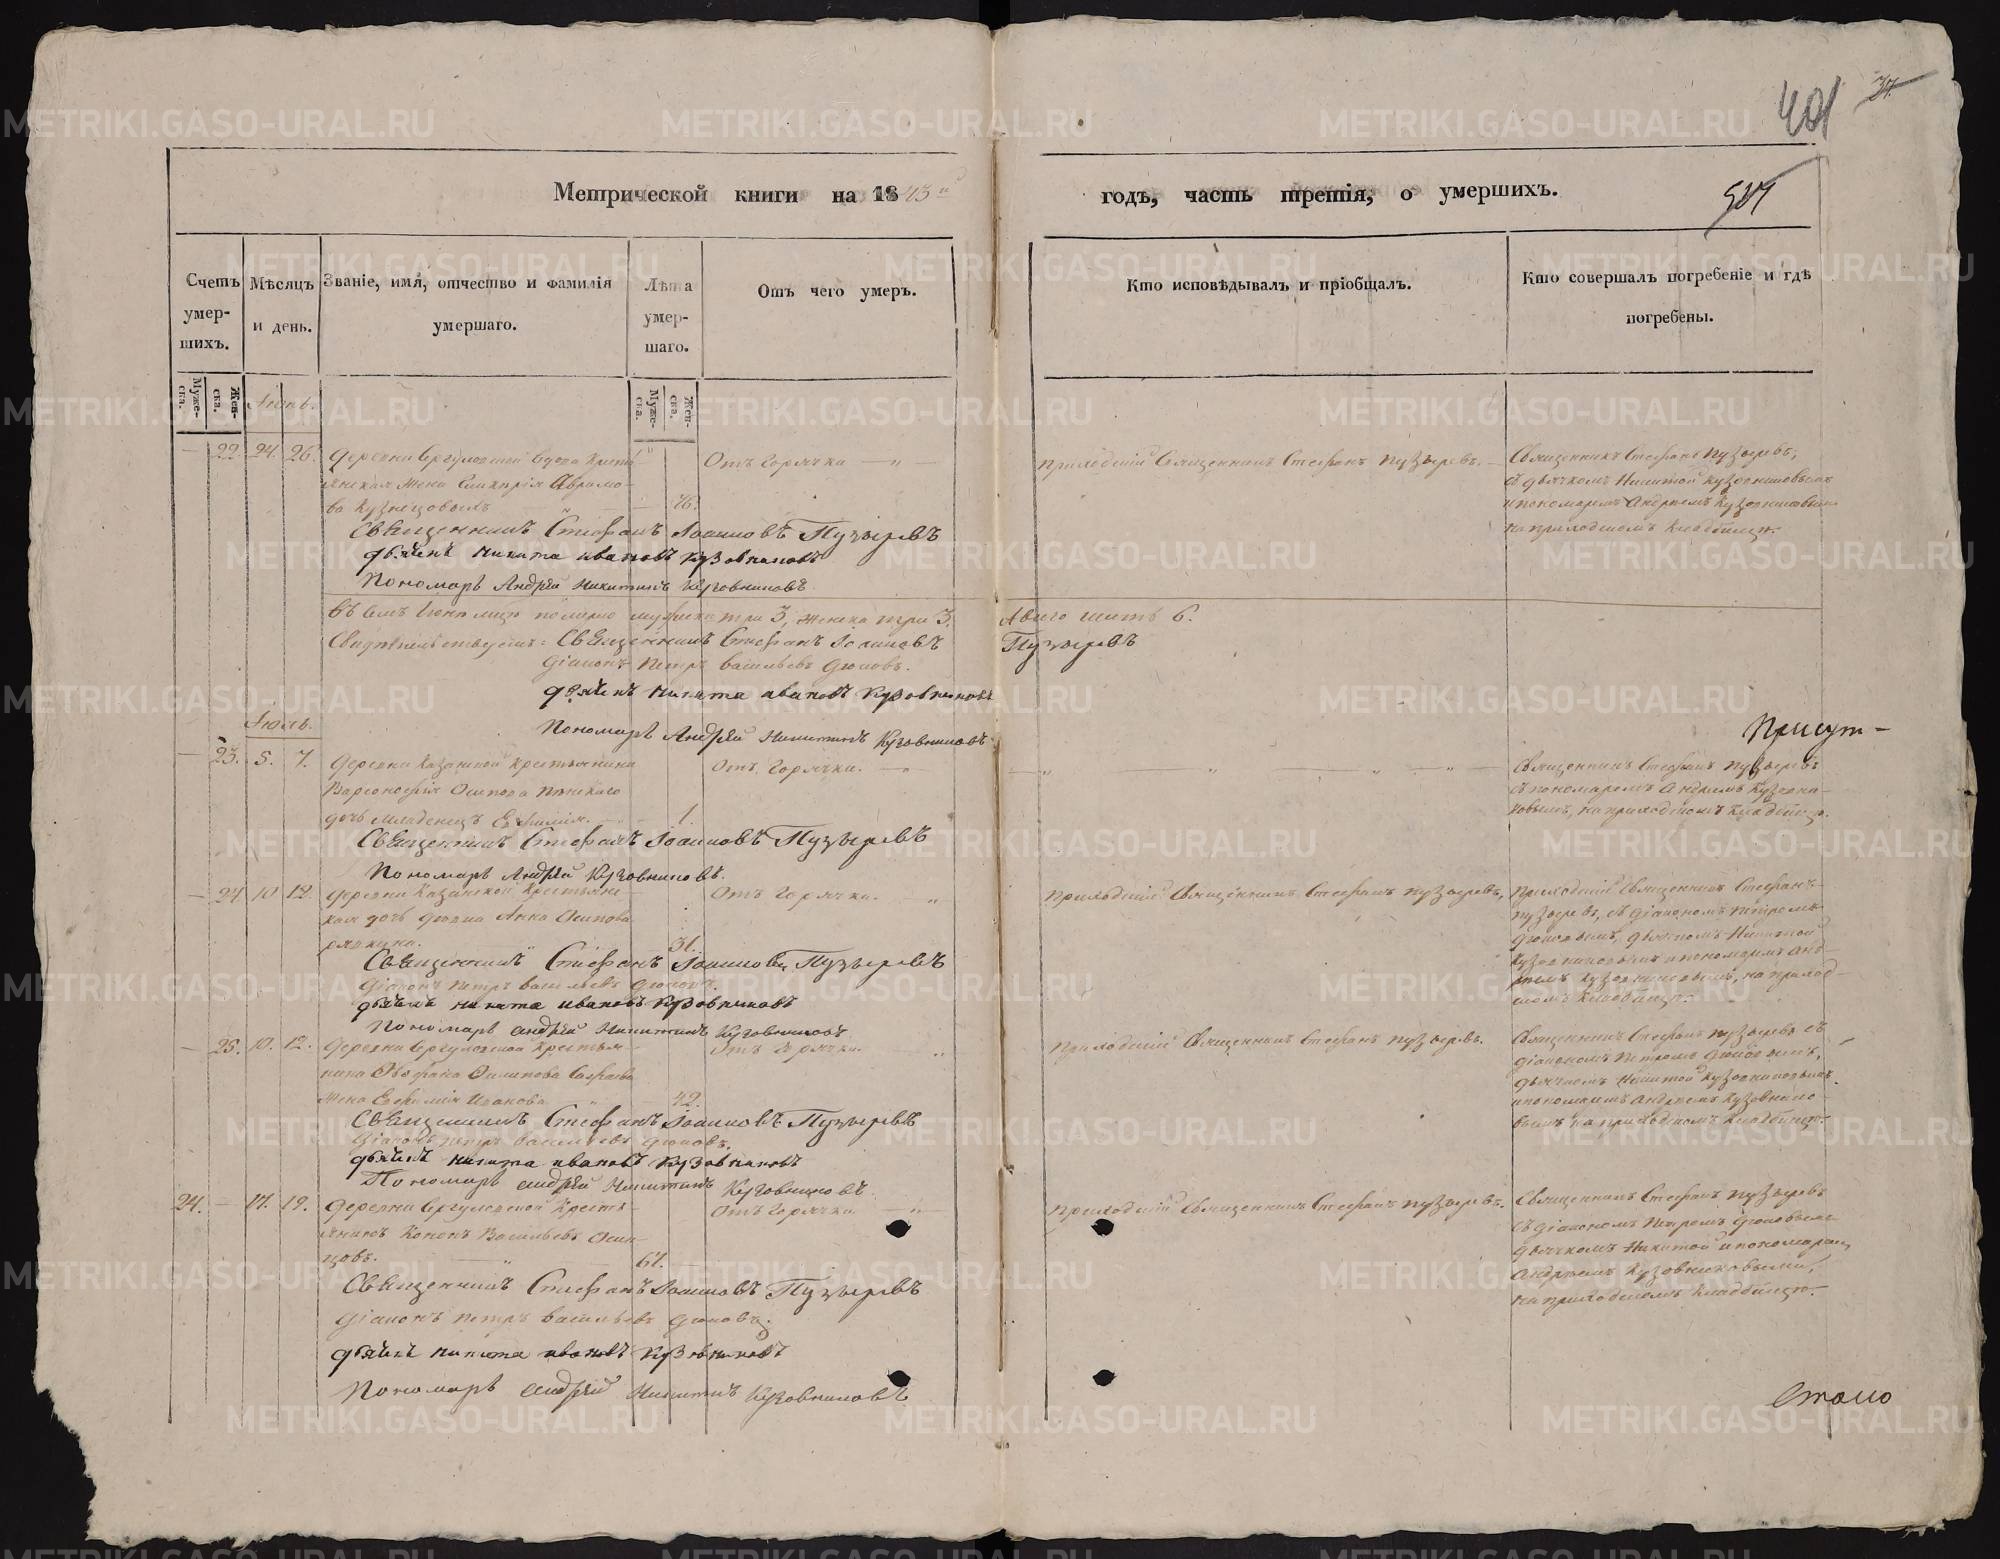 401
34.
Метрической книги на 1843й
годъ, часть третія, о умершихъ.
501
Счетъ умер-шихъ.
Мѣсяцъ и день.
Званіе, имя, отчество и фамилія
умершаго.
Лѣта умер-шаго.
Отъ чего умеръ.
Кто исповѣдывалъ и пріобщалъ.
Кто совершалъ погребеніе и гдѣ
погребены.
Муже-ска. Жен-ска.
Муже-ска. Жен-ска.
Іюнь.
— 22. 24. 26. Деревни Сергуловской вдова кресть-
янская жена Гликерія Аврамо-
ва Кузнецовыхъ — 76.
Отъ горячки — „ —
Приходскій Священникъ Стефанъ Пузыревъ. —
Священникъ Стефанъ Пузыревъ,
съ дьячкомъ Никитой Кузовниковымъ
и пономаремъ Андреемъ Кузовниковымъ
на приходскомъ кладбищѣ.
Священникъ Стефанъ Іоанновъ Пузыревъ
дьячекъ никита ивановъ кузовниковъ
Пономарь Андрей Никитинъ Кузовниковъ.
Въ семъ Іюнѣ мѣсяцѣ померло мужеска три 3, женска три 3.
А всего шесть 6.
Свидѣтельствуемъ: Священникъ Стефанъ Іоанновъ
Пузыревъ
Діаконъ Петръ Васильевъ Дюковъ.
дьячекъ никита ивановъ кузовниковъ
Пономарь Андрей Никитинъ Кузовниковъ
Присут-
Іюль.
— 23. 5. 7. Деревни Казанской крестьянина
Варсонофія Осипова
дочь младенецъ Евфимія. — 1.
Отъ горячки. — „
— „ — „ — „ — „ —
Священникъ Стефанъ Пузыревъ
съ пономаремъ Андреемъ Кузовни-
ковымъ, на приходскомъ кладбищѣ.
Священникъ Стефанъ Іоанновъ Пузыревъ
Пономарь Андрей Кузовниковъ.
— 24 10 12. Деревни Казанской крестьянс-
кая дочь девка Анна Осипова
31.
Отъ горячки. „
Приходскій Священникъ Стефанъ Пузыревъ,
Приходскій Священникъ Стефанъ
Пузыревъ, съ діакономъ Петромъ
Дюковымъ, дьячкомъ Никитой
Кузовниковымъ и пономаремъ Анд-
реемъ Кузовниковымъ, на приход-
скомъ кладбищѣ.
Священникъ Стефанъ Іоанновъ Пузыревъ
Діаконъ Петръ Васильевъ Дюковъ.
дьячекъ никита ивановъ кузовниковъ
Пономарь Андрей Никитинъ Кузовниковъ
— 25. 10. 12. Деревни Сергуловской крестья-
нина Филипова
жена Евфимія Иванова „ 42.
Отъ горячки. „
Приходскій Священникъ Стефанъ Пузыревъ.
Священникъ Стефанъ Пузыревъ съ
діакономъ Петромъ Дюковымъ,
дьячкомъ Никитой Кузовниковымъ
и пономаремъ Андреемъ Кузовнико-
вымъ на приходскомъ кладбищѣ.
Священникъ Стефанъ Іоанновъ Пузыревъ
Діаконъ Петръ Васильевъ Дюковъ.
дьячекъ никита ивановъ кузовниковъ
Пономарь Андрей Никитинъ Кузовниковъ.
24. — 17. 19. Деревни Сергуловской кресть-
янинъ Кононъ Васильевъ Осин-
цовъ. — „ — 61.
Отъ горячки — „ —
Приходскій Священникъ Стефанъ Пузыревъ.
Священникъ Стефанъ Пузыревъ
съ діакономъ Петромъ Дюковымъ
дьячкомъ Никитой и пономаремъ
Андреемъ Кузовниковыми,
на приходскомъ кладбищѣ.
Священникъ Стефанъ Іоанновъ Пузыревъ
Діаконъ Петръ Васильевъ Дюковъ.
дьячекъ никита ивановъ кузовниковъ
Пономарь Андрей Никитинъ Кузовниковъ
METRIKI.GASO-URAL.RU